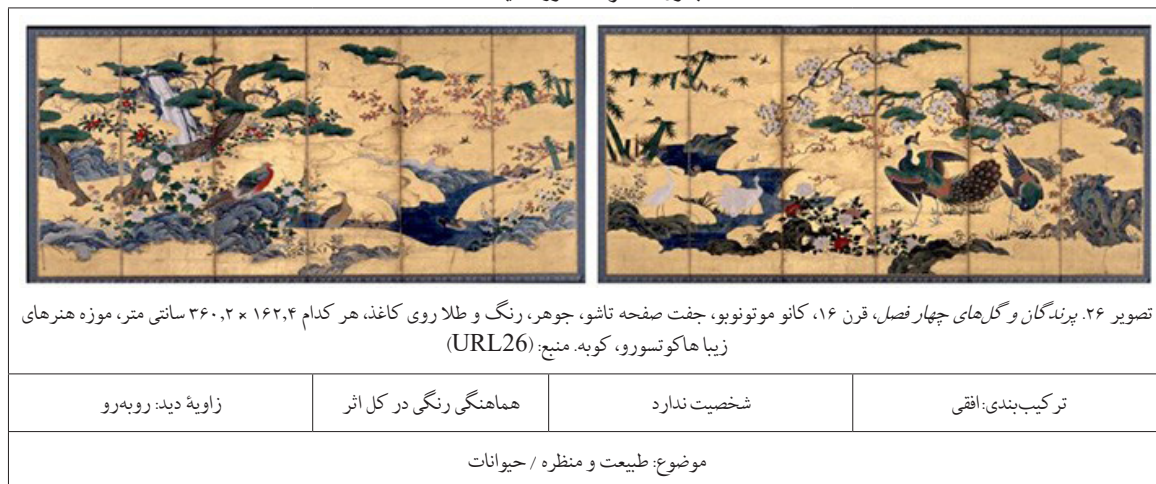 تصویر ۲۶. پرندگان و گل‌های چهار فصل، قرن ۱۶، کانو موتونوبو، جفت صفحه تاشو، جوهر، رنگ و طلا روی کاغذ، هر کدام ۱۶۲,۴ × ۳۶۰,۲ سانتی متر، موزه هنرهای
زیبا هاکوتسورو، کوبه. منبع: (URL26)
ترکیب‌بندی: افقی
شخصیت ندارد
هماهنگی رنگی در کل اثر
زاویهٔ دید: روبه‌رو
موضوع: طبیعت و منظره / حیوانات